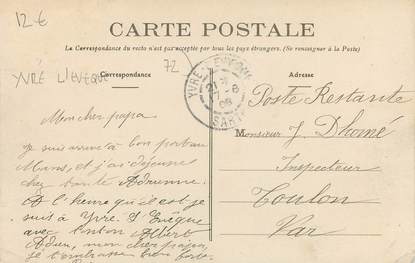 12 €
CARTE POSTALE
La Correspondance du recto n'est pas acceptée par tous les pays étrangers. (Se renseigner à la Poste)
YVRÉ L'EVEQUE
72
Correspondance
Adresse
YVRÉ-L'EVEQUE
7-8
08
SARTHE
Mon cher papa
je suis arrivé à bon port au
Mans, et j'ai déjeuné
chez tante Adrienne.
A l'heure qu'il est je
suis à Yvré l'Evêque
avec tonton Albert
Adieu, mon cher papa,
je t'embrasse bien fort
Poste Restante
Monsieur J. Dhomé
Inspecteur
Toulon
Var